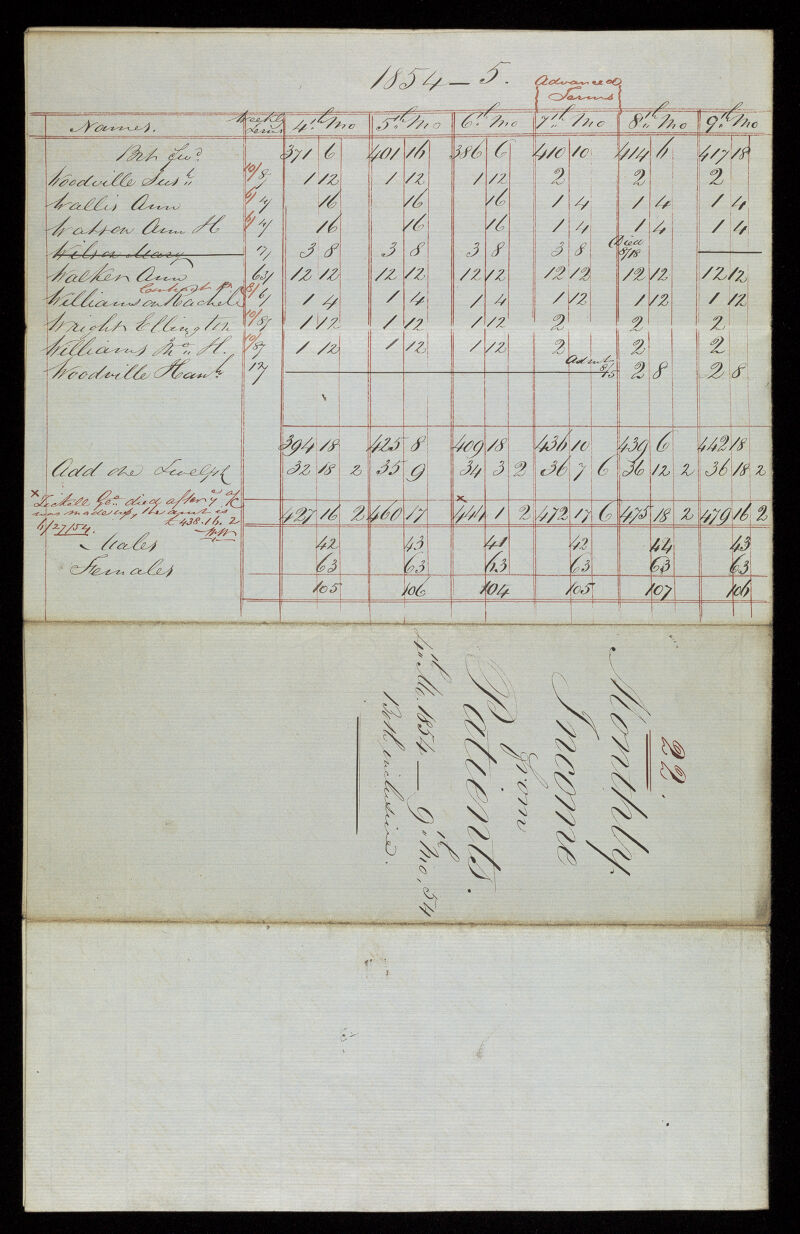 1854 – 5.
Advanced
Terms
Names. Weekly Terms 4th Mo 5th Mo 6th Mo 7th Mo 8th Mo 9th Mo
Bt Fwd 371 6 401 16 386 6 410 10 414 6 417 18
Woodville Sush 10/ 8/ 1 12 1 12 1 12 2 2 2
Wallis Ann 6/ 4/ 16 16 16 1 4 1 4 1 4
Watson Ann H 6/ 4/ 16 16 16 1 4 1 4 1 4
Wilson Mary 17/ 3 8 3 8 3 8 3 8 Died 8/18
Walker Ann 63/ 12 12 12 12 12 12 12 12 12 12 12 12
Williamson Rachel 8/ 6/ 1 4 1 4 1 4 1 12 1 12 1 12
Wright Ellington 10/ 8/ 1 12 1 12 1 12 2 2 2
Williams Jno H. 10/ 8/ 1 12 1 12 1 12 2 2 2
Woodville Hanh 12/ Admt 8/15 2 8 2 8
394 18 425 8 409 18 436 10 439 6 442 18
Add one Twelfth 32 18 2 35 9 34 3 2 36 7 6 36 12 2 36 18 2
x Tickell Geo. died after yd a/c
was made up, the amt is
6/27/54. £438.16.2
427 16 2 460 17 x 444 1 2 472 17 6 475 18 2 479 16 2
Males 42 43 41 42 44 43
Females 63 63 63 63 63 63
105 106 104 105 107 106
22.
Monthly
Income
from
Patients.
4th Mo. 1854 — 9th Mo, 54
Both inclusive.